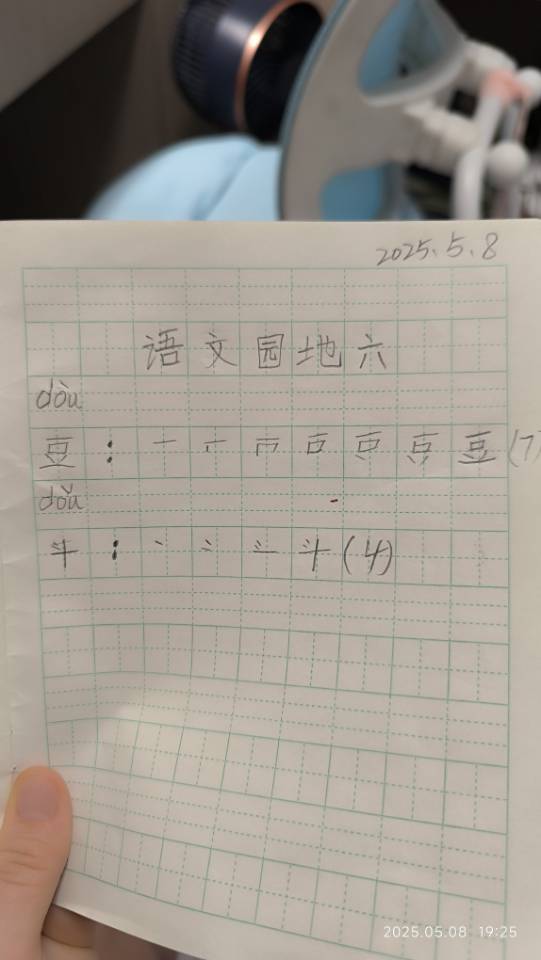 2025.5.8
语文园地六
dòu
豆：一 豆 (7)
dǒu
斗：丶 斗 (4)
2025.05.08 19:25